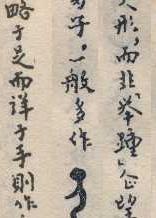 人形，而非举踵"企望
子"，一般多作
略于足而详于手则作